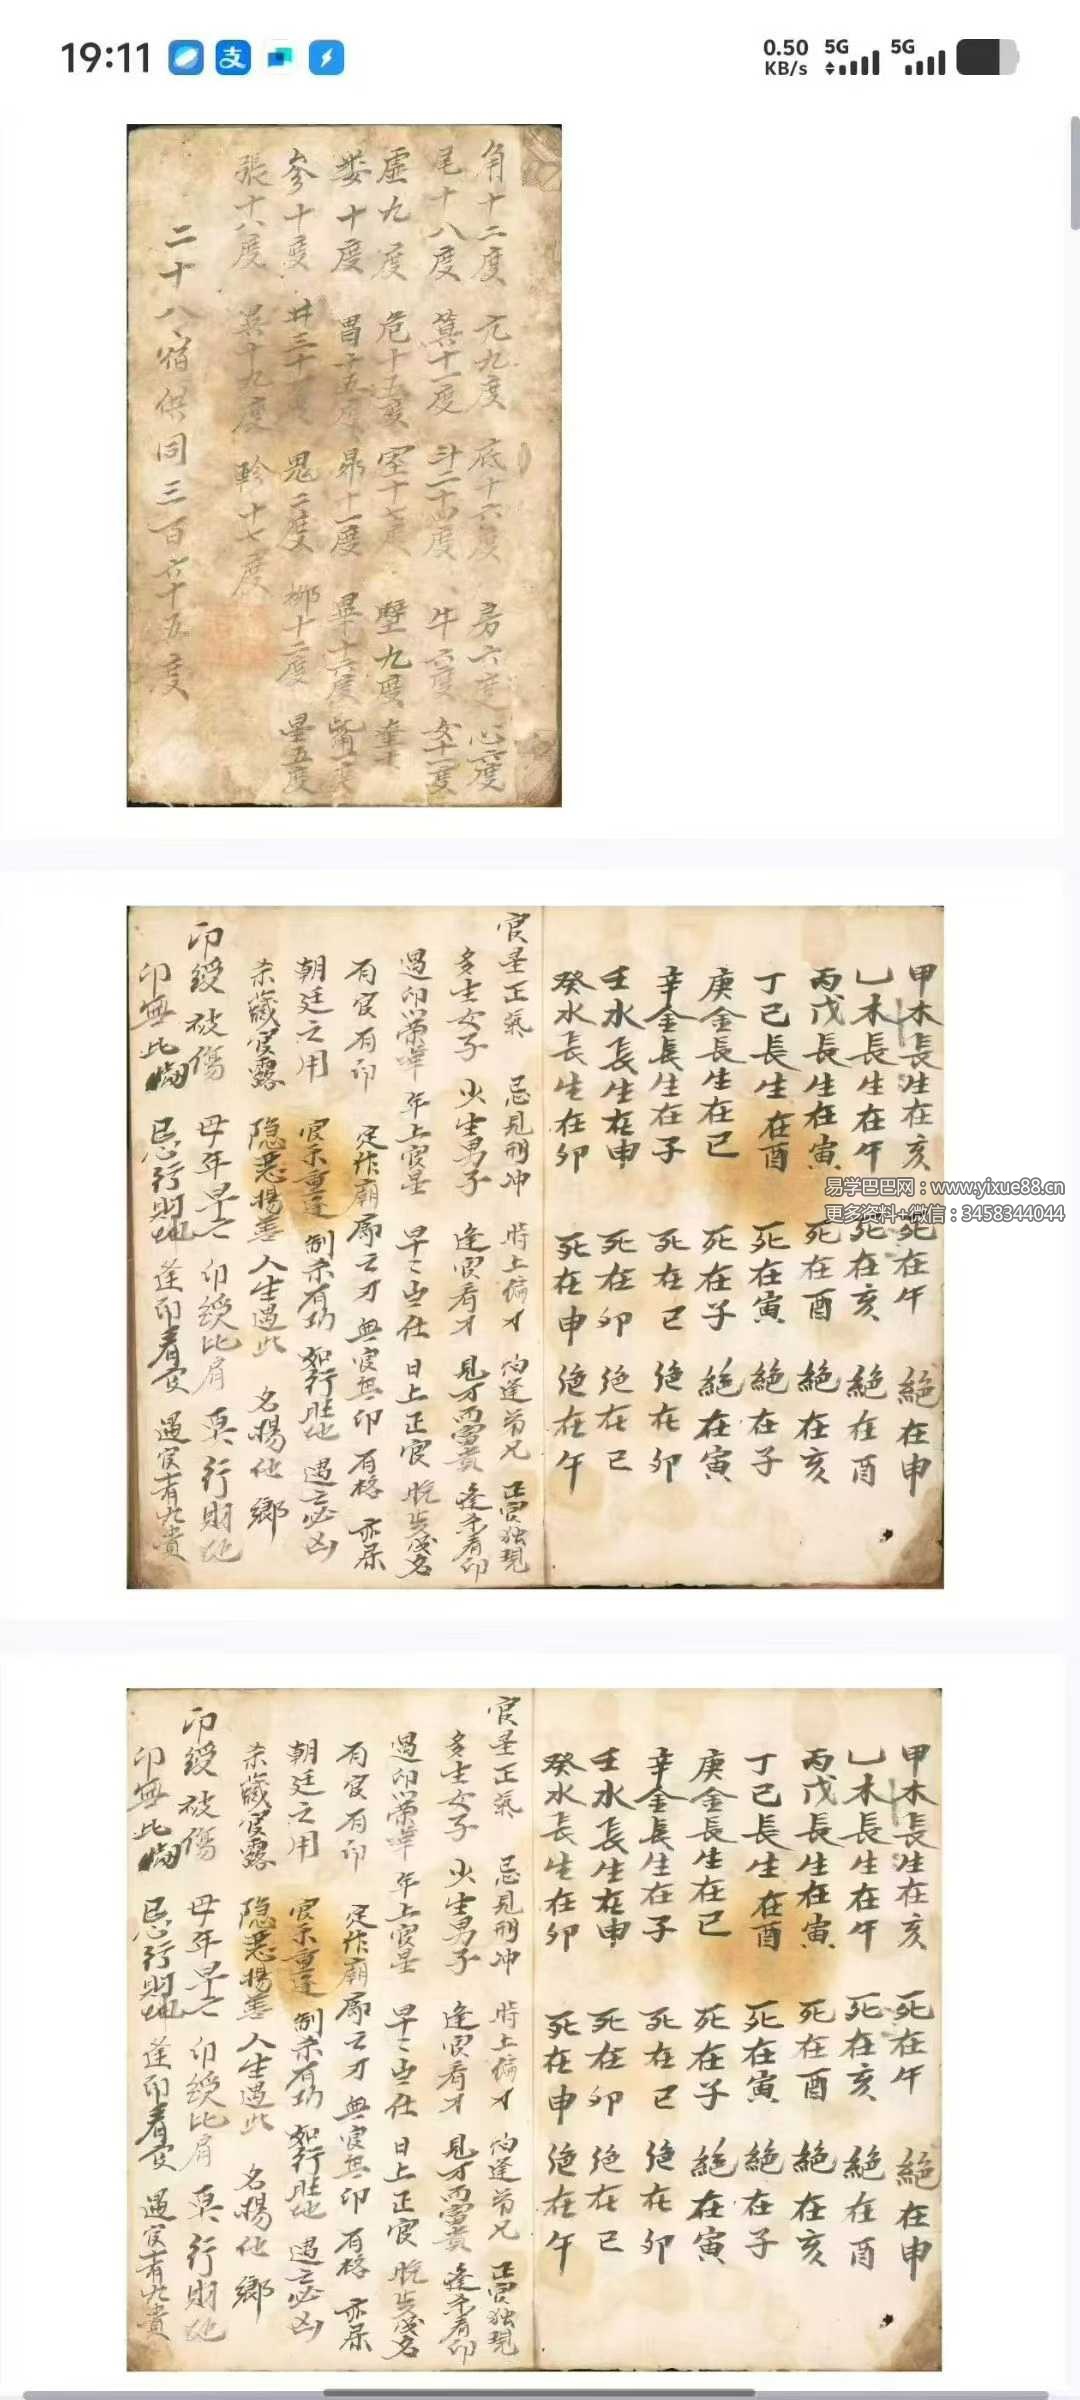 19:11
0.50 KB/s 5G 5G
角十二度 亢九度 底十六度 房六度 心六度
尾十八度 箕十一度 斗二十四度 牛六度 女十一度
虛九度 危十五度 室十七度 壁九度 奎十
婁十度 胃十五度 昴十一度 畢十六度 觜一度
參十度 井三十度 鬼二度 柳十二度 星五度
張十八度 翼十九度 軫十七度
二十八宿供同三百六十五度
甲木長生在亥 死在午 絕在申
乙木長生在午 死在亥 絕在酉
丙戊長生在寅 死在酉 絕在亥
丁己長生在酉 死在寅 絕在子
庚金長生在巳 死在子 絕在寅
辛金長生在子 死在巳 绝在卯
壬水長生在申 死在卯 绝在巳
癸水長生在卯 死在申 绝在午
官星正氣 忌見刑冲 時上偏才 怕逢弟兄 正官独現
多生女子 少生男子 逢官看才 見才而富貴 逢杀看印
遇印榮華 年上官星 早亡出仕 日上正官 晚年成名
有官有印 定作廟廊之才 無官無印 有格亦呆
朝廷之用 官杀重逢 制杀有功 如行旺地 遇之必凶
杀藏官露 隐恶揚善 人生遇此 名揚他鄉
印綬被傷 母年早亡 印綬比肩 莫行財地
印無比 忌行財地 逢印看官 遇官有九貴
易学巴巴网：www.yixue88.cn
更多资料+微信：3458344044
甲木長生在亥 死在午 絕在申
乙木長生在午 死在亥 絕在酉
丙戊長生在寅 死在酉 絕在亥
丁己長生在酉 死在寅 絕在子
庚金長生在巳 死在子 絕在寅
辛金長生在子 死在巳 绝在卯
壬水長生在申 死在卯 绝在巳
癸水長生在卯 死在申 绝在午
官星正氣 忌見刑冲 時上偏才 怕逢弟兄 正官独現
多生女子 少生男子 逢官看才 見才而富貴 逢杀看印
遇印榮華 年上官星 早亡出仕 日上正官 晚年成名
有官有印 定作廟廊之才 無官無印 有格亦呆
朝廷之用 官杀重逢 制杀有功 如行旺地 遇之必凶
杀藏官露 隐恶揚善 人生遇此 名揚他鄉
印綬被傷 母年早亡 印綬比肩 莫行財地
印無比 忌行財地 逢印看官 遇官有九貴